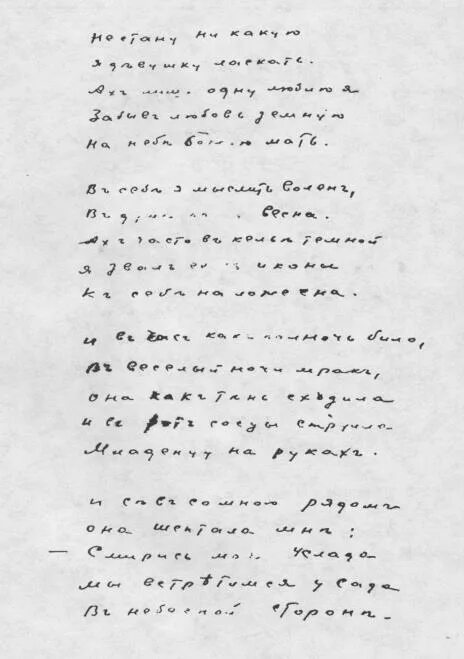 Не стану ни какую
Я дѣвушку ласкать.
Ахъ одну люблю я
Забывъ любовь земную
На небѣ Божью мать.
Въ себѣ я мыслить воленъ,
Въ весна.
Ахъ часто въ кельѣ темной
я звалъ иконы
Къ себѣ на ложе сна.
И въ часъ какъ полночь било,
Въ веселый ночи мракъ,
она какъ тѣнь сходила
и въ ротъ сосцы струила
Младенцу на рукахъ.
И сѣвъ со мною рядомъ
она шептала мнѣ:
— Смирись моя Услада
мы встрѣтимся у Сада
Въ небесной сторонѣ.